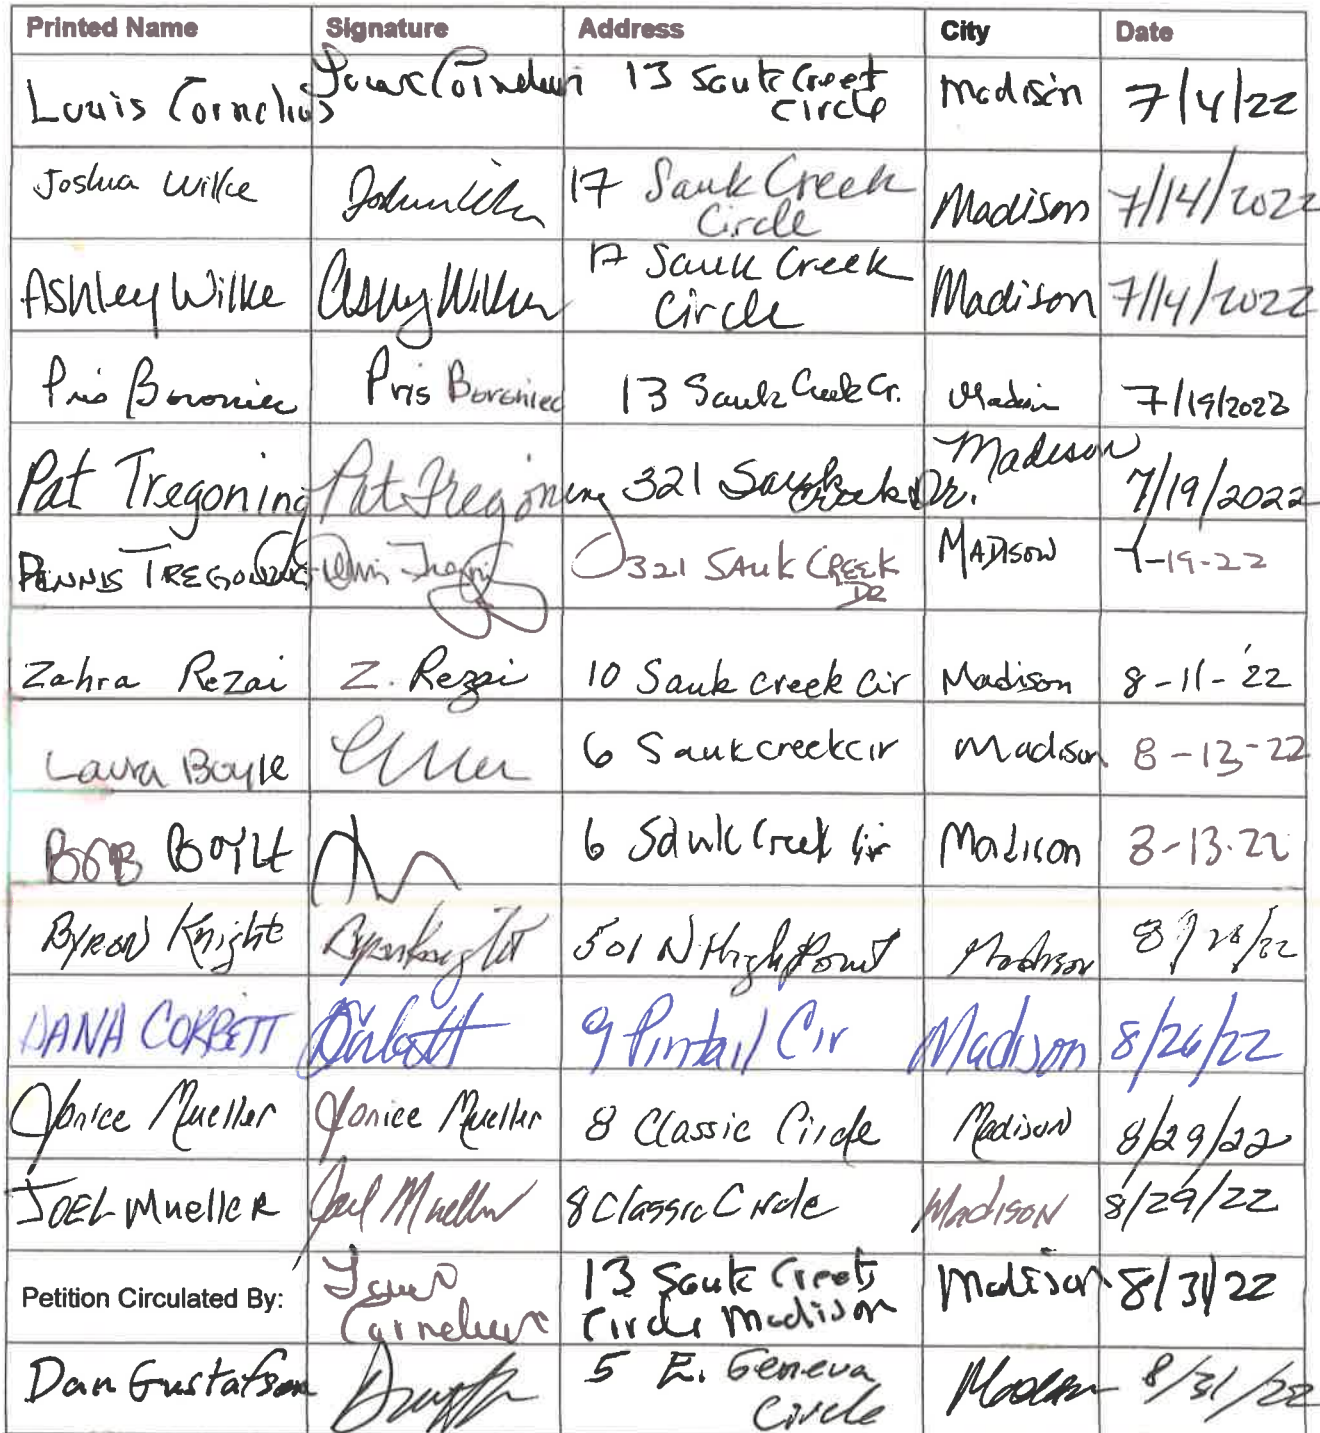 Printed Name Signature Address City Date
Louis Cornelius Louis Cornelius 13 Sauk Creek Circle Madison 7/4/22
Joshua Wilke 17 Sauk Creek Circle Madison 7/14/2022
Ashley Wilke Ashley Wilke 17 Sauk Creek Circle Madison 7/14/2022
Pris Boroniec Pris Boroniec 13 Sauk Creek Cr. Madison 7/19/2022
Pat Tregoning Pat Tregoning 321 Sauk Creek Dr. Madison 7/19/2022
DENNIS TREGONING Dennis 321 SAUK CREEK DR MADISON 7-19-22
Zahra Rezai Z. Rezai 10 Sauk creek Cir Madison 8-11-'22
Laura Boyle 6 Sauk creek cir Madison 8-13-22
BOB BOYLE 6 Sauk Creek Cir Madison 8-13-22
BYRON Knight Byron Knight 501 N High Point Madison
DANA CORBETT 9 Pintail Cir Madison 8/26/22
Janice Mueller Janice Mueller 8 Classic Circle Madison 8/29/22
JOEL MUELLER Joel Mueller 8 Classic Circle Madison 8/29/22
Petition Circulated By: Louis Cornelius 13 Sauk Creek Circle Madison Madison 8/31/22
Dan Gustafson 5 E. Geneva Circle Madison 8/31/22